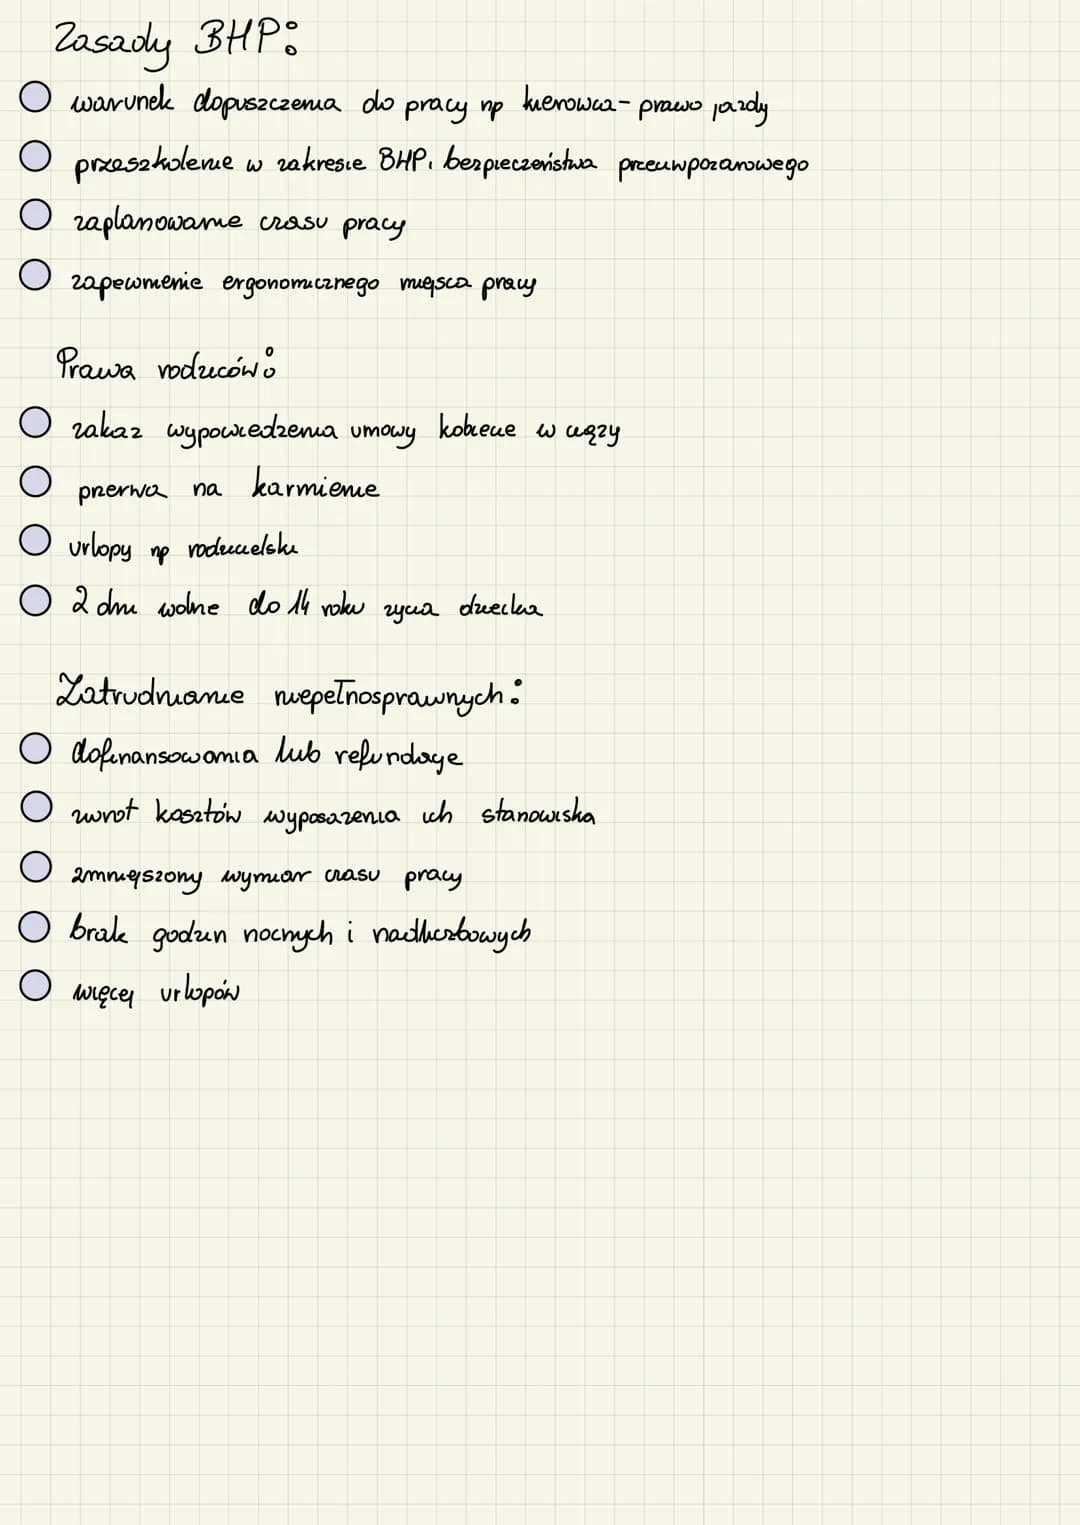 Zasady BHP:
warunek dopuszczenia do pracy np kierowca - prawo jazdy
przeszkolenie w zakresie BHP, bezpieczeństwa przeciwpożarowego
zaplanowanie czasu pracy
zapewnienie ergonomicznego miejsca pracy
Prawa rodziców:
zakaz wypowiedzenia umowy kobiecie w ciąży
przerwa na karmienie
urlopy np rodzicielski
2 dni wolne do 14 roku życia dziecka
Zatrudnianie niepełnosprawnych:
dofinansowania lub refundacje
zwrot kosztów wyposażenia ich stanowiska
zmniejszony wymiar czasu pracy
brak godzin nocnych i nadliczbowych
więcej urlopów